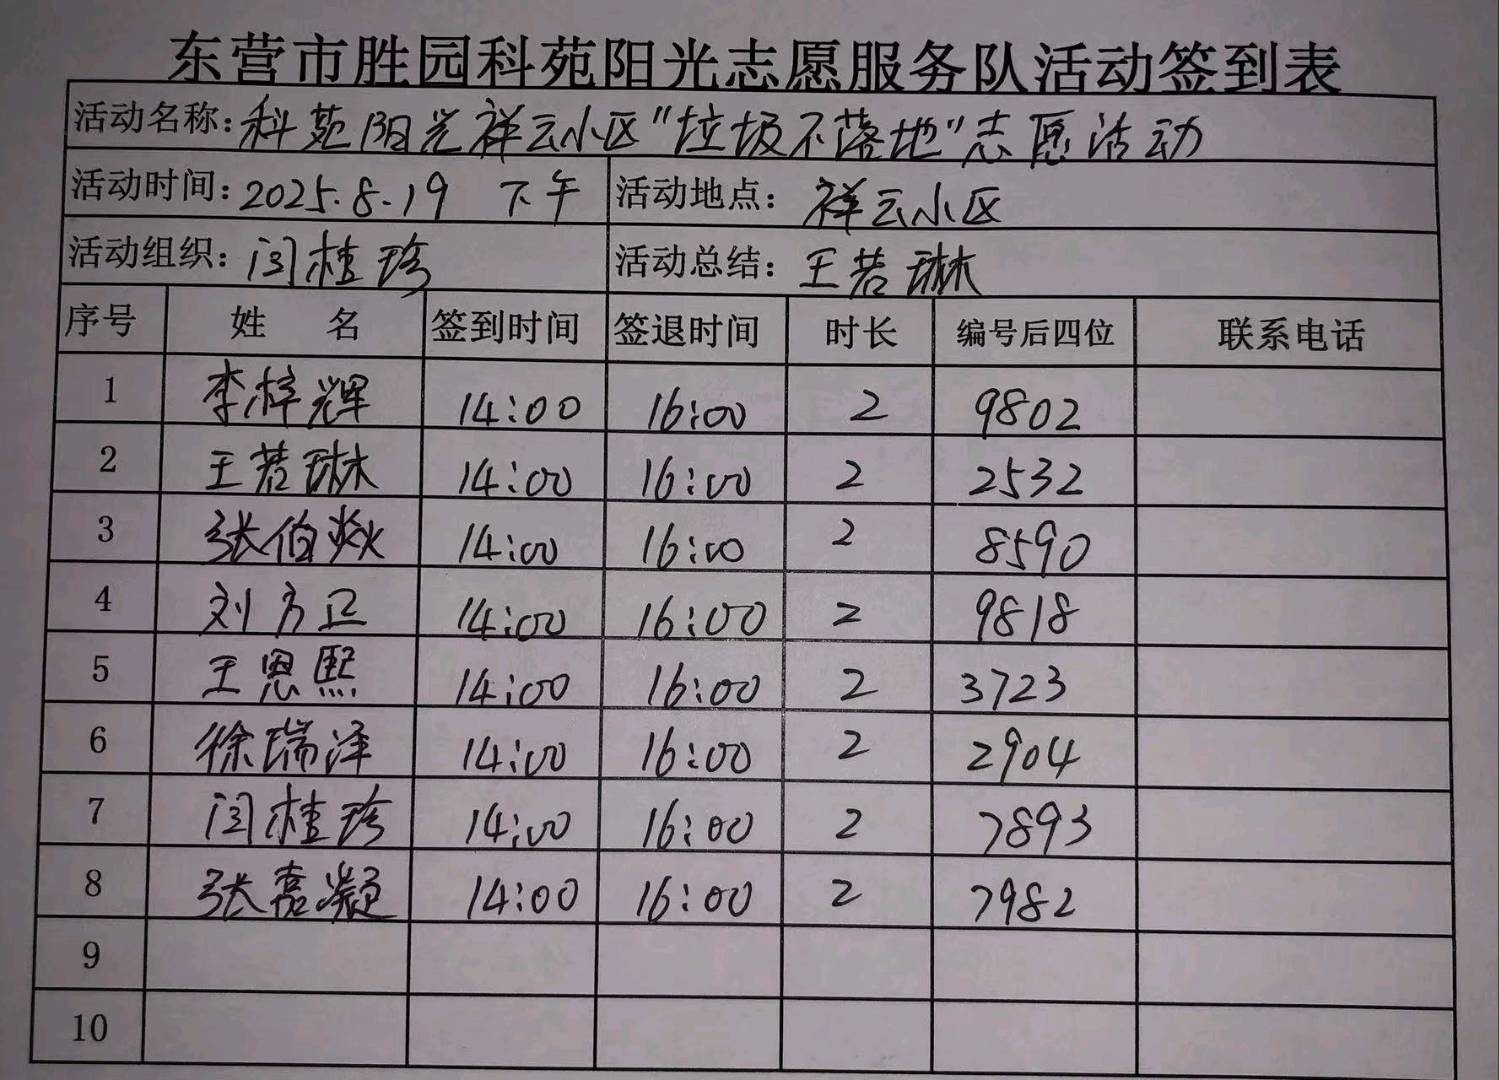 东营市胜园科苑阳光志愿服务队活动签到表
活动名称: 科苑阳光祥云小区"垃圾不落地"志愿活动
活动时间: 2025.8.19 下午 活动地点: 祥云小区
活动组织: 闫桂珍 活动总结: 王若琳
序号 姓 名 签到时间 签退时间 时长 编号后四位 联系电话
1 李梓辉 14:00 16:00 2 9802
2 王若琳 14:00 16:00 2 2532
3 张伯焱 14:00 16:00 2 8590
4 刘方卫 14:00 16:00 2 9818
5 王恩熙 14:00 16:00 2 3723
6 徐瑞泽 14:00 16:00 2 2904
7 闫桂珍 14:00 16:00 2 7893
8 张嘉凝 14:00 16:00 2 7982
9
10